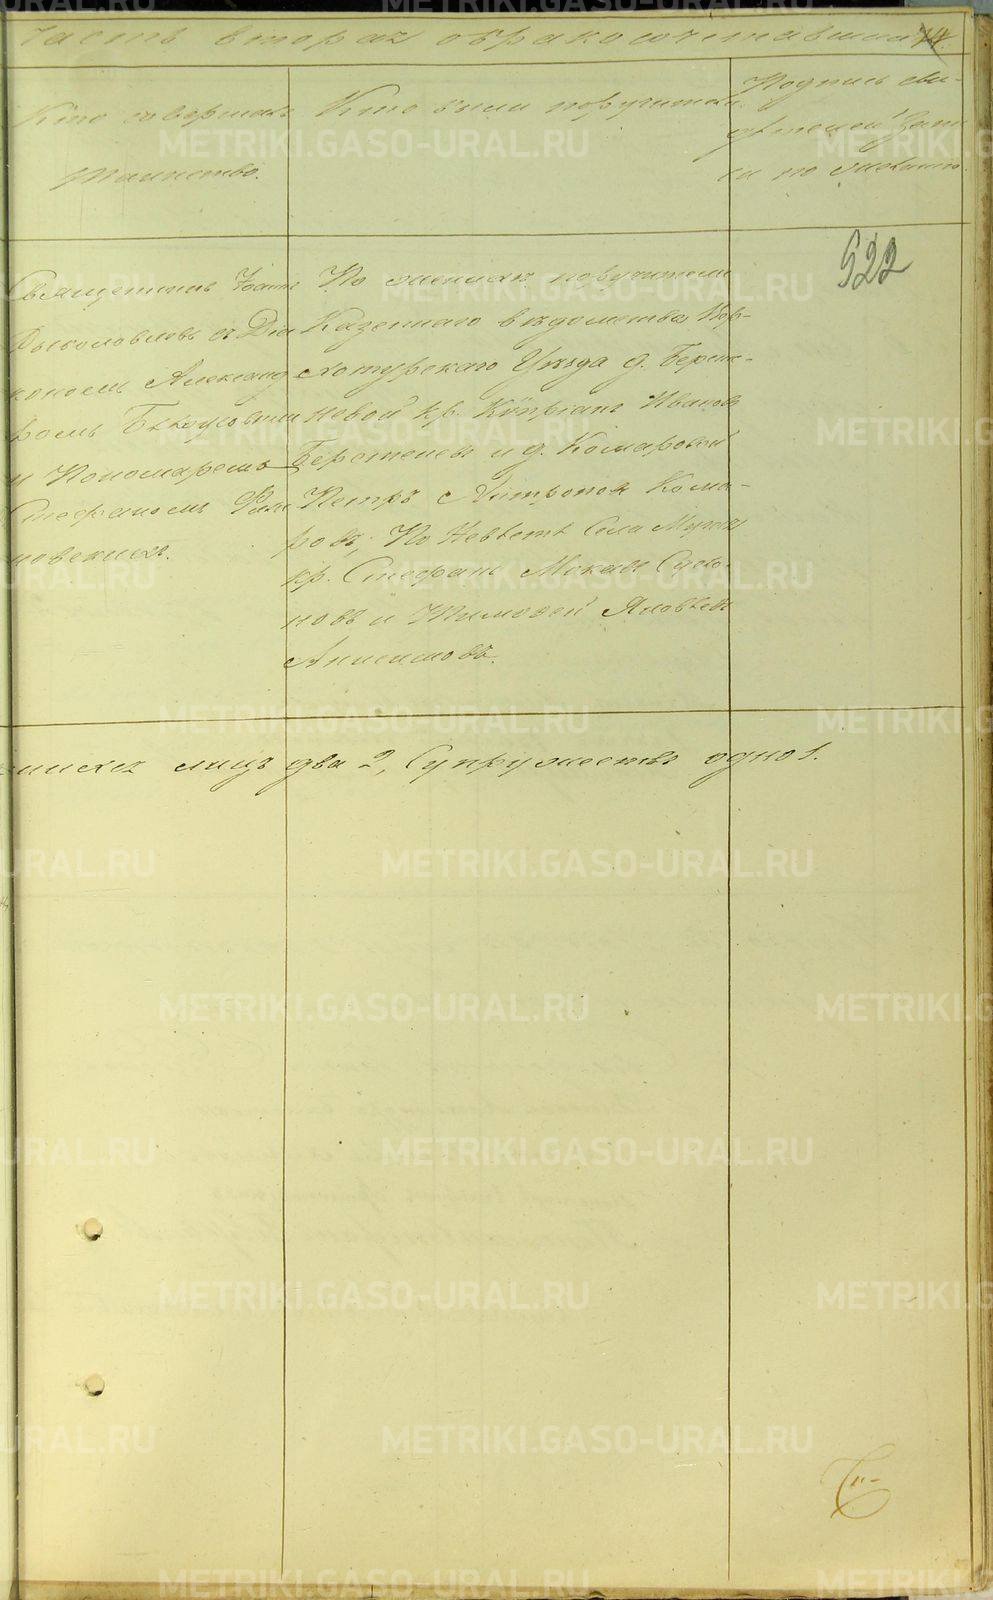 часть вторая о бракосочетавшихся
Кто совершалъ
Таинство.
Кто были поручители.
Подпись сви-
дѣтелей запи
си по желанію.
522
Священникъ Іоаннъ
съ Діа
кономъ Александ
ромъ
и Пономаремъ
Стефаномъ
новскимъ.
По женихѣ поручители
Казеннаго вѣдомства Вер-
хотурскаго Уѣзда д.
невой кр. Кипріанъ Ивановъ
и д. Комаровой
Петръ Антроповъ Кома-
ровъ; По Невѣстѣ Села
кр. Стефанъ
новъ и Тимофей Яковлевъ
Анисимовъ.
лицъ два 2, Супружество одно 1.
METRIKI.GASO-URAL.RU